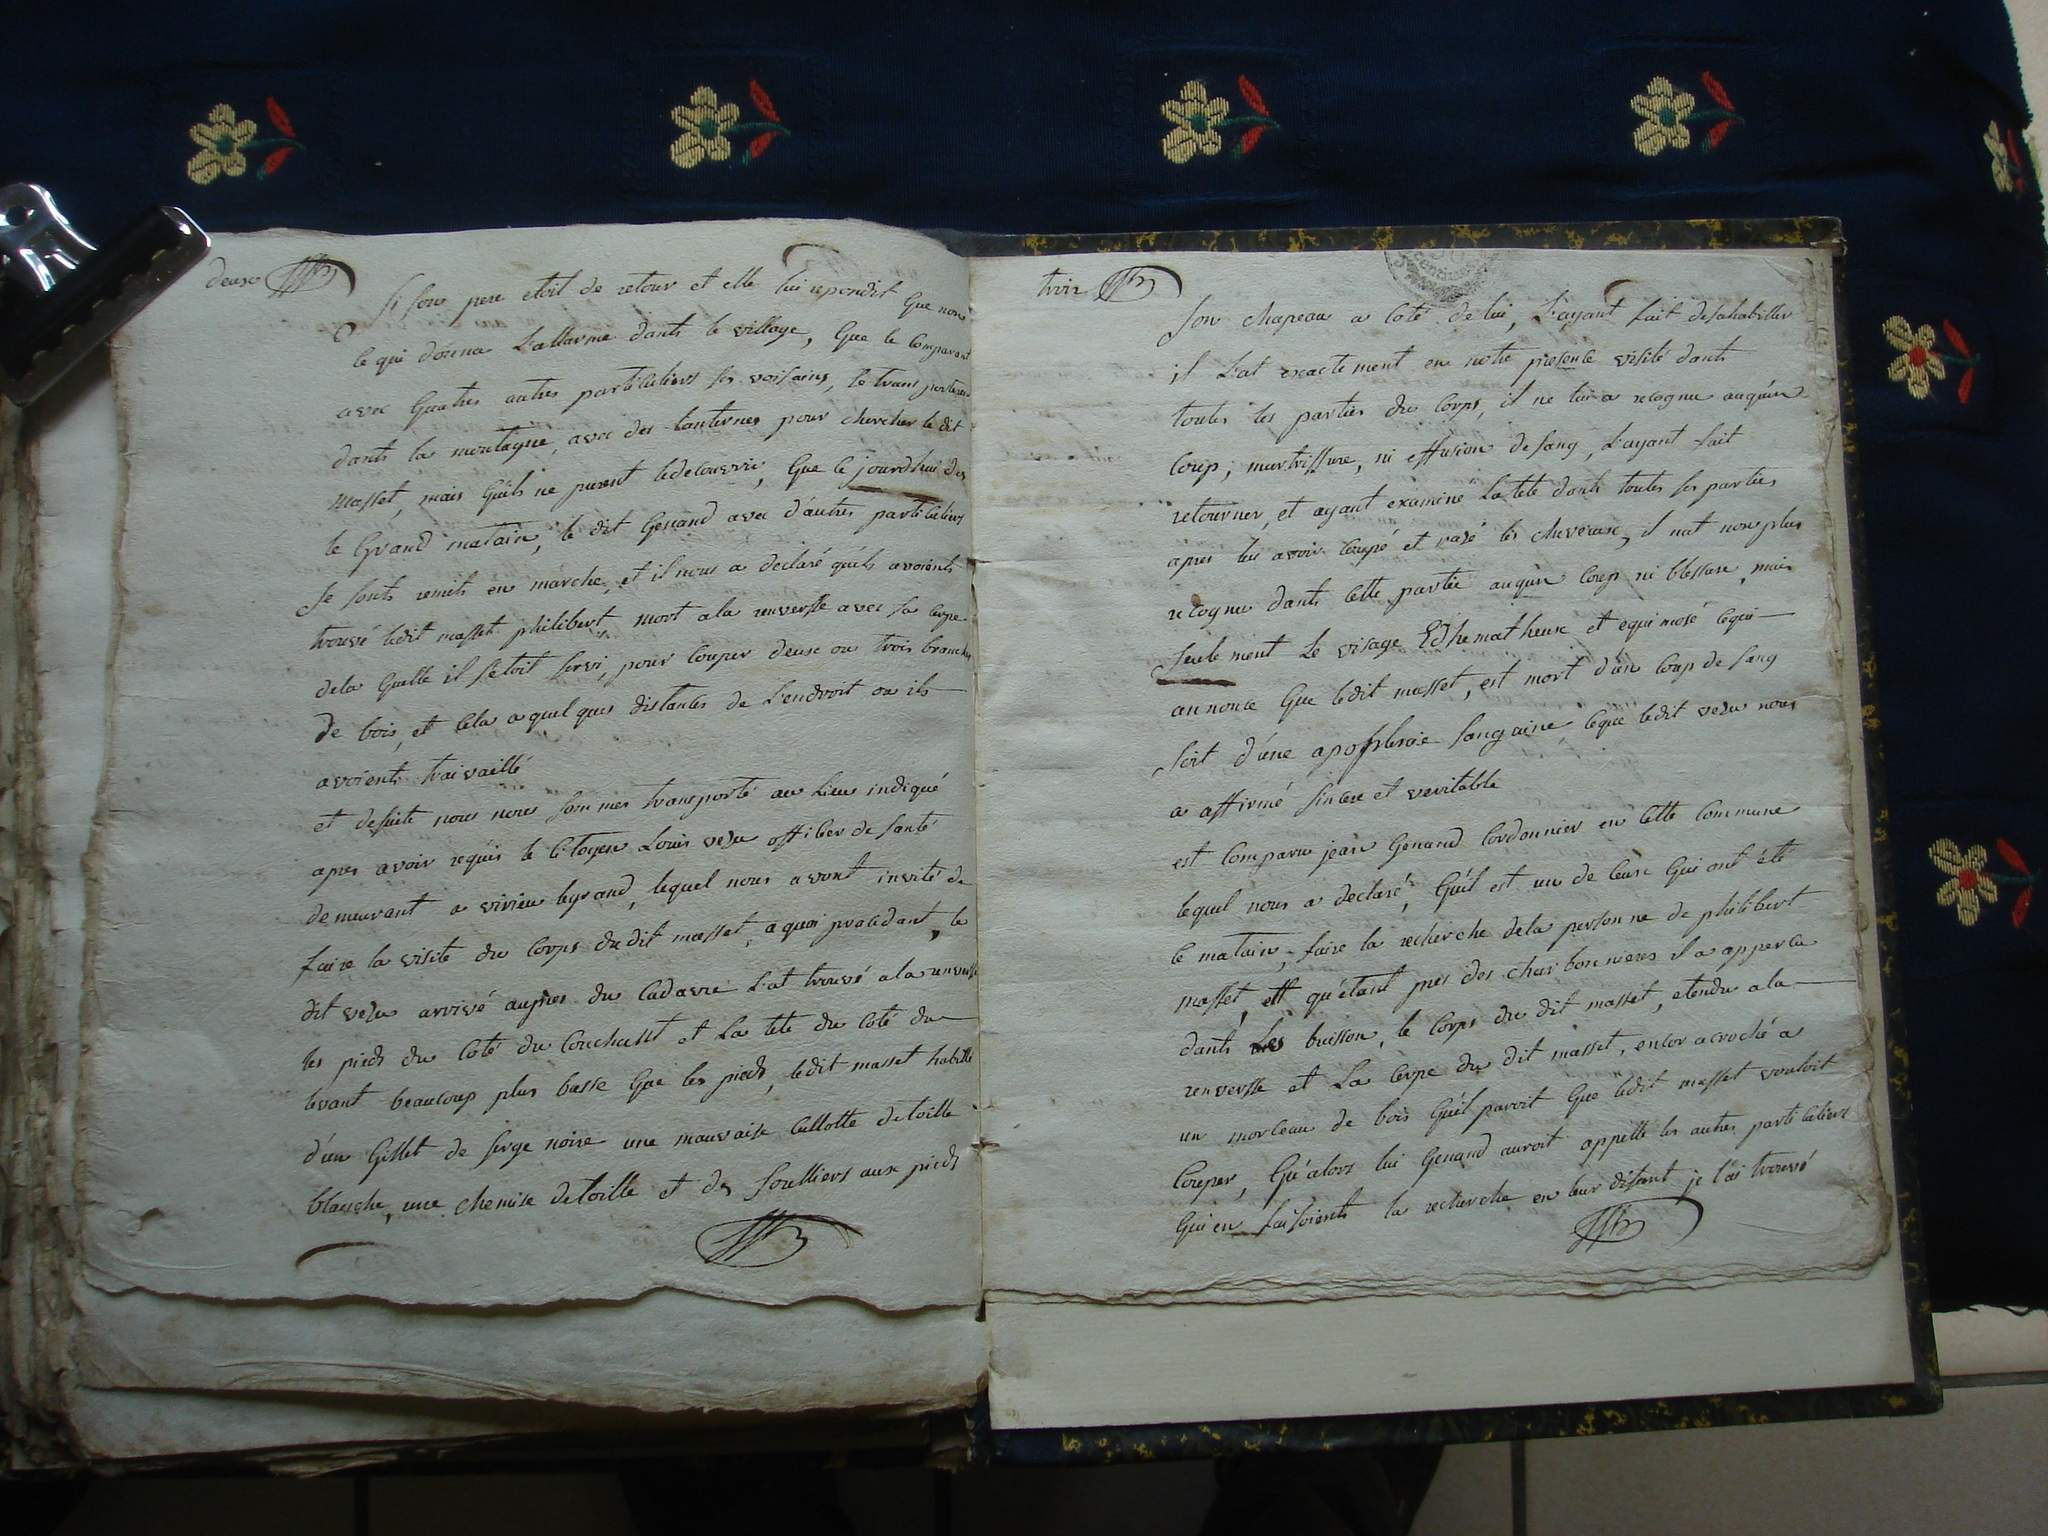 deux
si son pere etoit de retour et elle lui repondit que non
ce qui donna l'allarme dants le village, que le comparant
avec quatres autres particuliers ses voisains, se transporterent
dants la montagne, avec des lanternes pour chercher le dit
masset, mais quils ne purent ledecouvrir, que ce jourdhui des
le grand matain, le dit Genand avec d'autres particuliers
se sonts remits en marche, et il nous a declaré quils avoients
trouvé ledit masset philibert, mort ala renversse avec sa serpe
dela quelle il s'etoit servi, pour couper deux ou trois branches
de bois, et cela a quelques distantes de l'endroit ou ils
avoients travaillé
et desuite nous nous sommes transporté au lieu indiqué
apres avoir réquis le citoyen Louis vezu officier de santé
demeurant a virieu legrand, lequel nous avont invité de
faire la visite du corps dudit masset, a quoi procedant, le
dit vezu arrivé aupres du cadavre l'at trouvé ala renversse
les pieds du coté du couchant et la tete du coté du
levant beaucoup plus basse que les pieds, ledit masset habillé
d'un gillet de serge noire une mauvaise cullotte detoille
blanche, une chemise detoille et des soulliers aux pieds
trois
son chapeau a coté de lui, l'ayant fait desahabiller
il l'at exactement en notre presence visité dants
toutes les parties du corps, il ne lui a recognu auqu'un
coup, murtrissure, ni effusion de sang, l'ayant fait
retourner, et ayant examiné la tete dants toutes ses parties
apres lui avoir coupé et razé les cheveux, il nat non plus
recognu dants cette partie auqu'un coup ni blessure, mais
seulement le visage Edhematheux et equimosé cequi
annonce que ledit masset, est mort d'un coup de sang
soit d'une apoplexie sanguine, ceque ledit vezu nous
a affirmé sincere et veritable
est comparu jean Genand cordonnier en cette commune
lequel nous a declaré, qu'il est un de ceux qui ont été
ce matain, faire la recherche dela personne de philibert
masset, et qu'etant pres des charbonnieres il a apperçu
dants les buisson, le corps du dit masset, etendu ala
renversse et la serpe du dit masset, encor acroché a
un morceau de bois qu'il paroit que ledit masset vouloit
couper, qu'alors lui Genand auroit appellé les autres particuliers
qui en faisoients la recherche en leur disant je l'ai trouvé